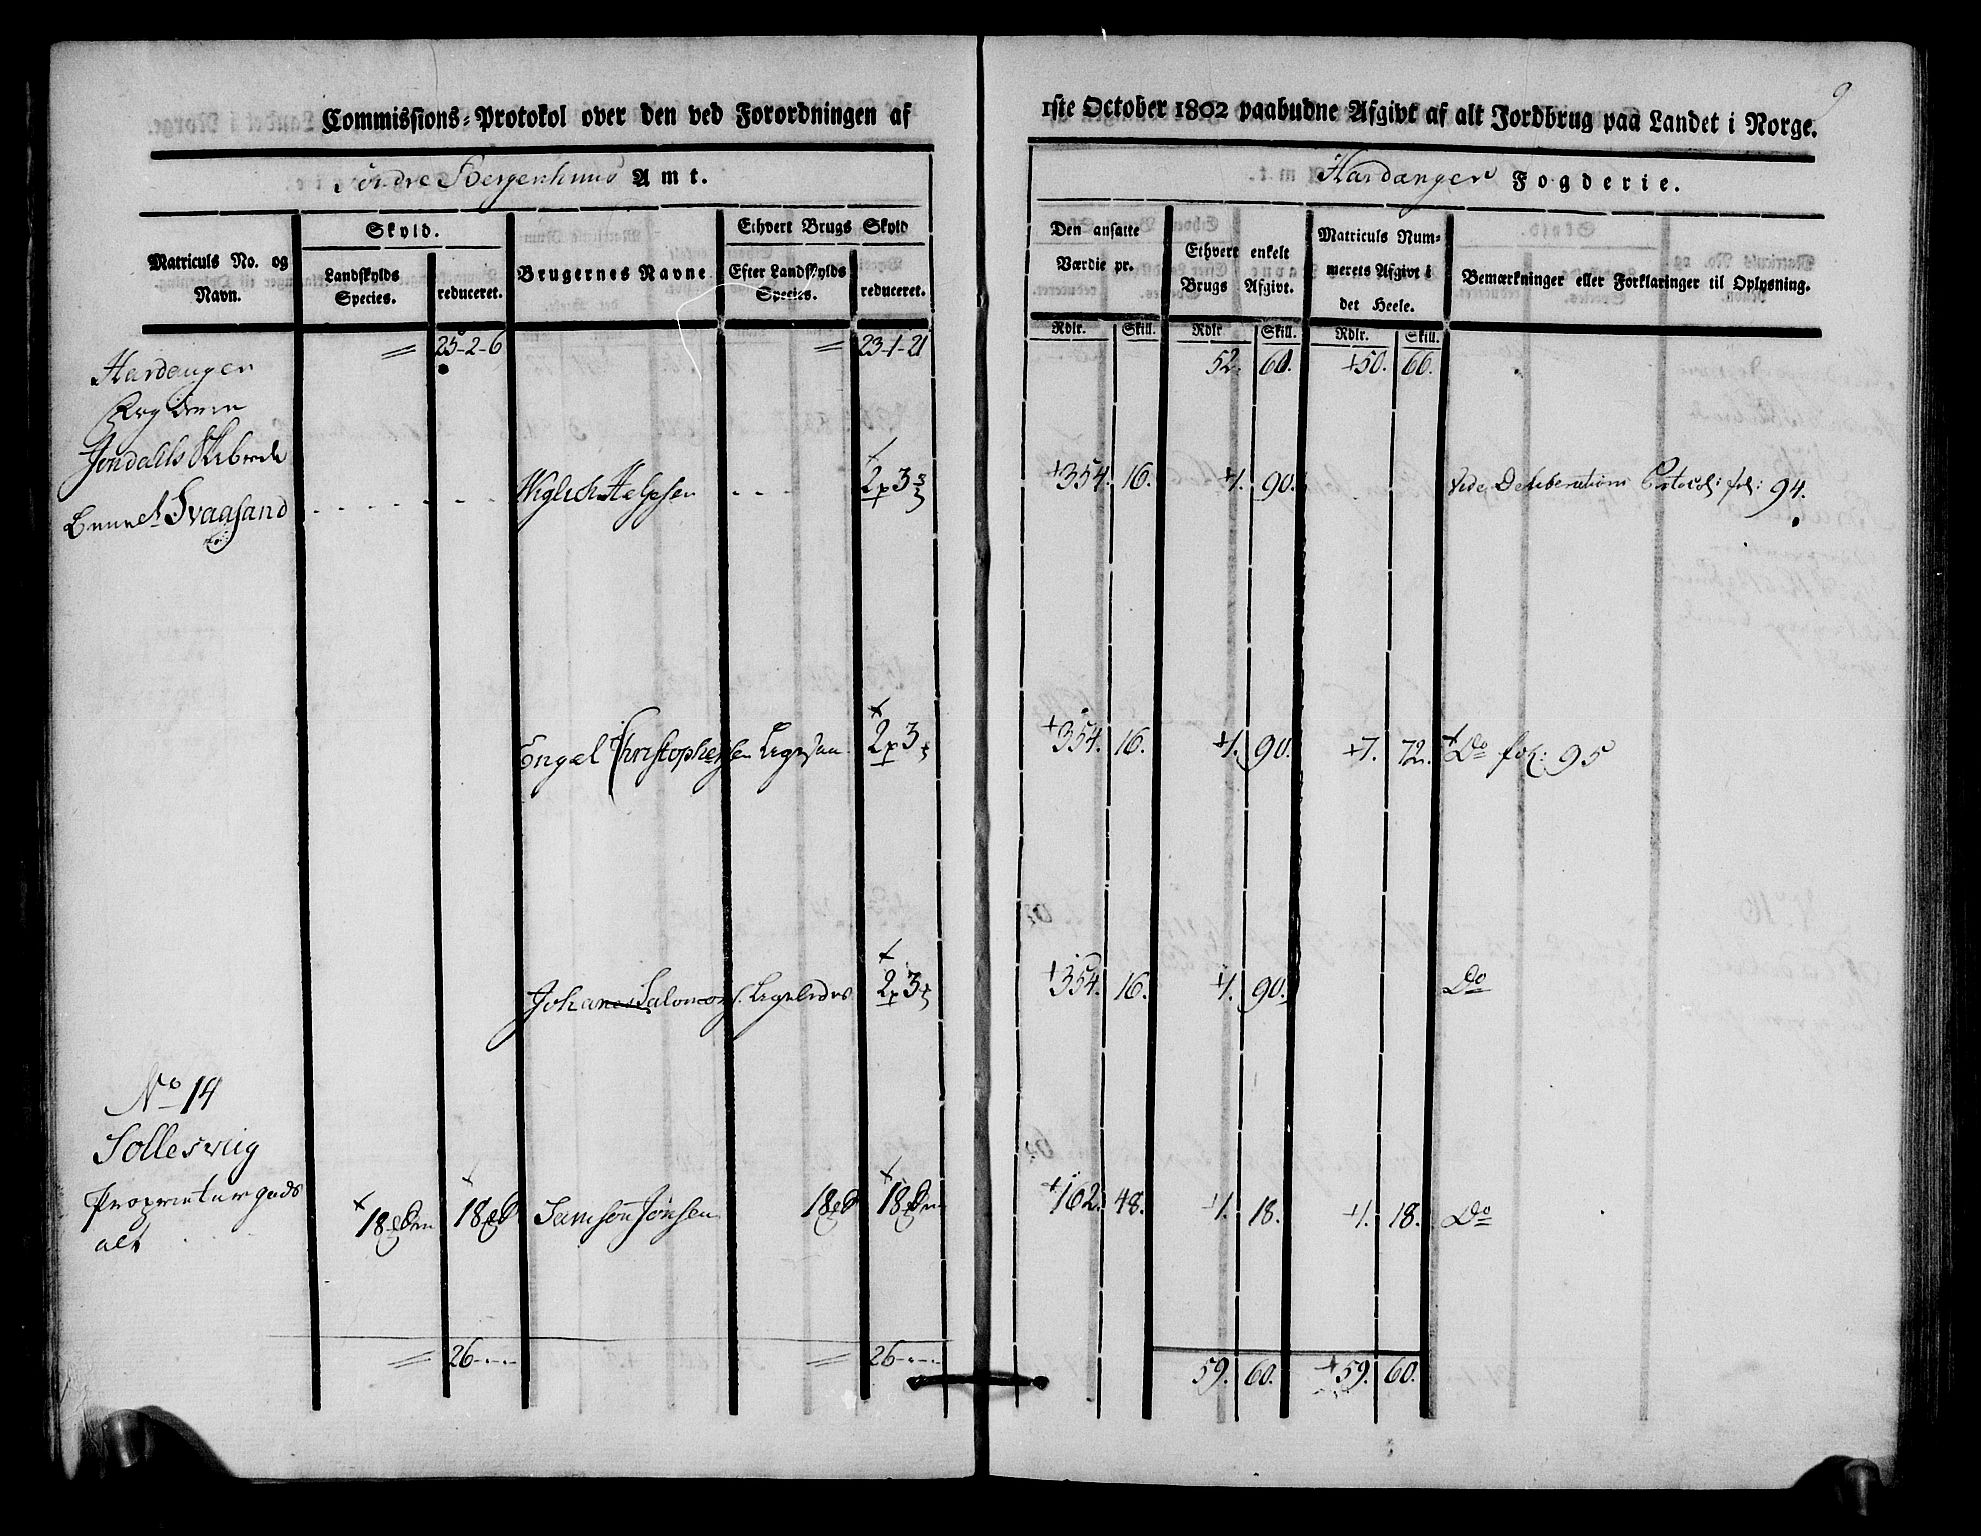 Commissions-Protokol over den ved Forordningen af 1ste October 1802 paabudne Afgivt af alt Jordbrug paa Landet i Norge.
9
Søndre Bergenhuus Amt.
Hardanger Fogderie.
Matriculs No. og Navn.
Skyld.
Landskylds Species.
reduceret.
Brugernes Navne.
Ethvert Brugs Skyld
Efter Landskylds Species.
reduceret.
Den ansatte Værdie pr.
Rdlr. Skill.
Ethvert enkelt Brugs Afgivt.
Rdlr Skill.
Matriculs Nummerets Afgivt i det Heele.
Rdlr. Skill.
Bemærkninger eller Forklaringer til Oplysning.
25-2-6 23-1-21 52. 60. +50. 60.
Hardanger
Jondahls Skibrede
Svaasand
Wiglich Helgesen 2 3 +354. 16. +1. 90. Vide Deliberations Protocol: fol: 94.
Engel Christophersen Ligesaa 2 3 +354. 16. +1. 90. +7. 72. Do fol: 95
Johanes Salomons. Ligeledes 2 3 +354. 16. +1. 90. Do
No 14
Sollesviig
Proprietairgods
alt 18 18 Samson Jonsen 18 18 +162. 48. +1. 18. +1. 18. Do
26 26 59. 60. +59. 60.